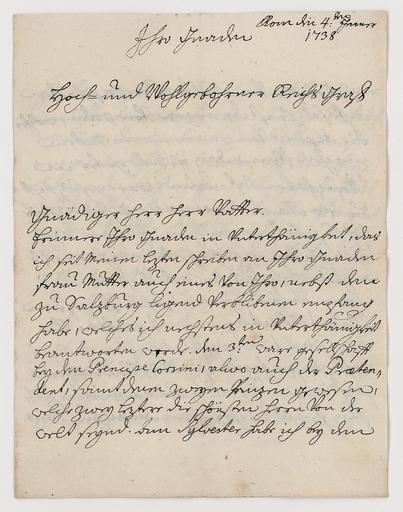 Rom den 4:ten Jener
1738
Ihro Gnaden
Hoch= und Wohlgebohrner Reichs Graf
Gnädiger Herr Herr Vatter.
Erinnere Ihro Gnaden in Unterthänigkeit, das
ich seit meinen lezten schreiben an Ihro Gnaden
Frau Mutter auch eines von Ihro, nebst dem
zu Salzburg ligend verblibenen empfang
habe, welches ich nechstens in Unterthänigkeit
beantworten werde. den 3:ten ware gesellschafft
bey dem Principe Corsini, alwo auch der Præten=
dent, samt denen zweyen Prinzen gewesen,
welche zwey leztere die schönsten Herrn von der
welt seynd. am Sylvester habe ich bey dem